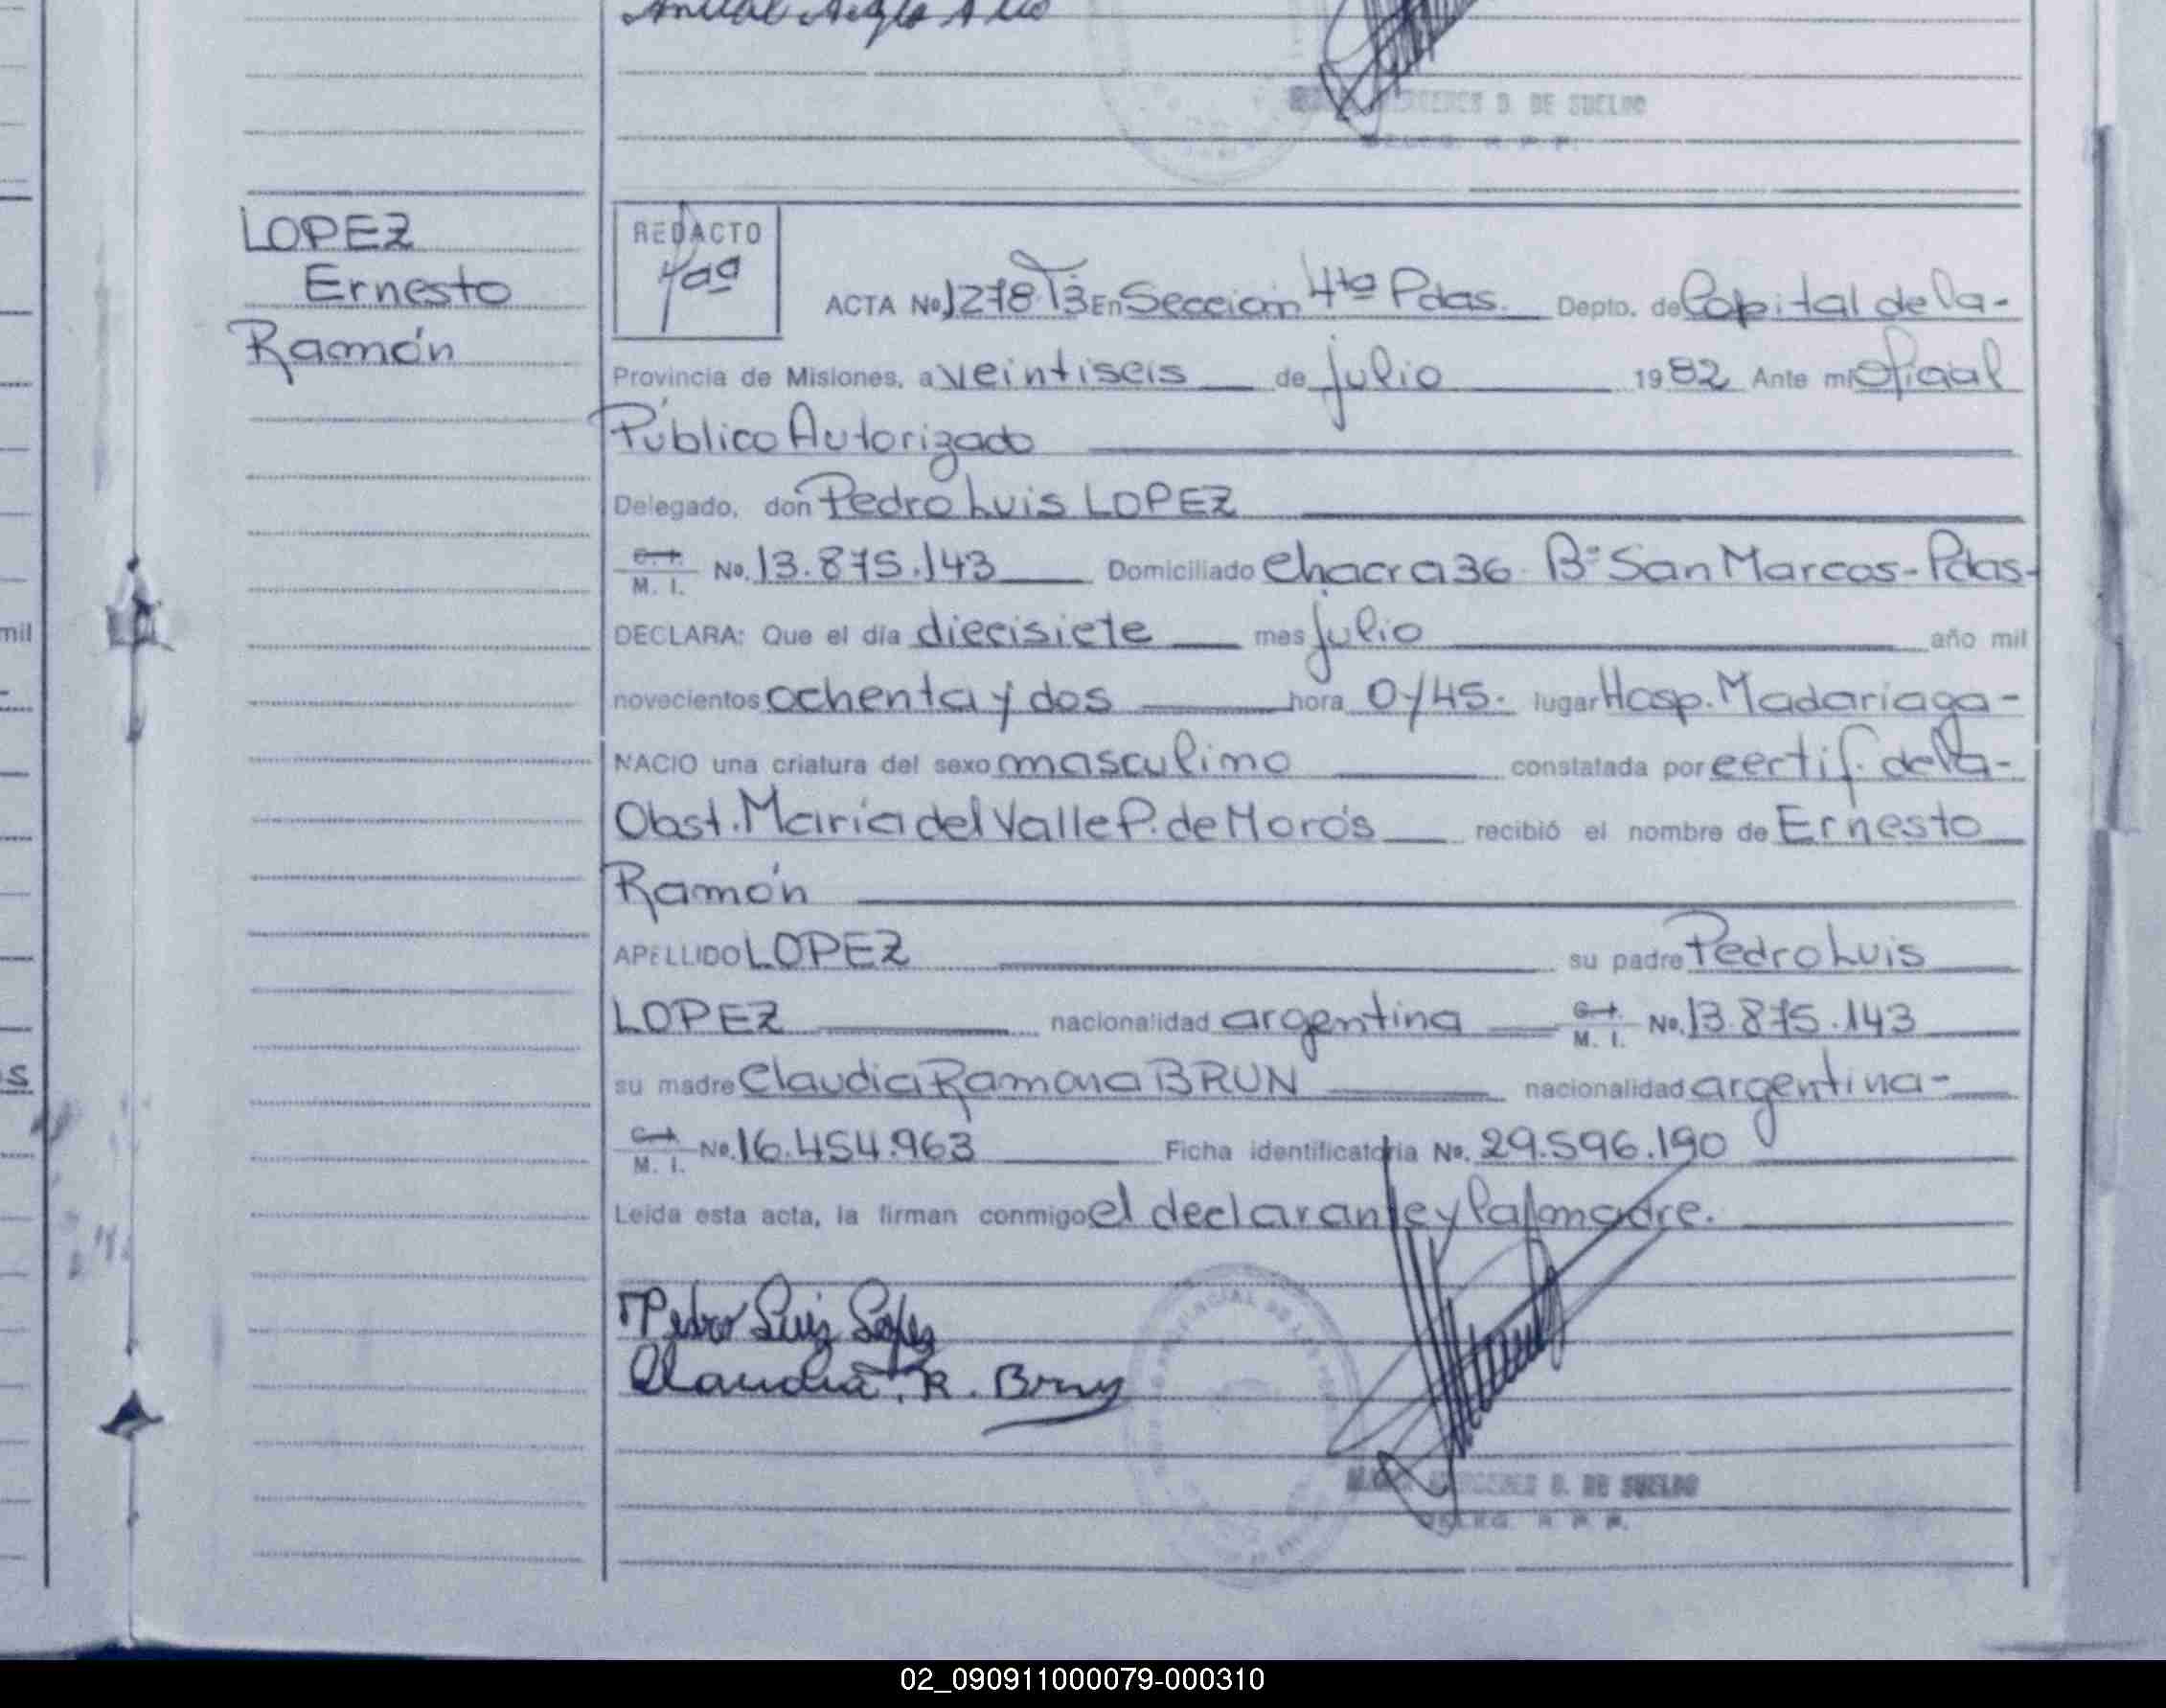 DE SUELDO
LOPEZ
Ernesto
Ramón
REDACTO
ACTA No 1278 T3 En Sección 4ta Pdas. Depto. de Capital de la -
Provincia de Misiones, a veintiseis de julio 1982 Ante mi Oficial
Público Autorizado
Delegado, don Pedro Luis LOPEZ
C. I. M. I. No. 13.875.143 Domiciliado Chacra 36 Bº San Marcos - Pdas -
DECLARA: Que el día diecisiete mes julio año mil
novecientos ochenta y dos hora 0/45. lugar Hosp. Madariaga -
NACIO una criatura del sexo masculino constatada por certif. de la -
Obst. María del Valle P. de Morós recibió el nombre de Ernesto
Ramón
APELLIDO LOPEZ su padre Pedro Luis
LOPEZ nacionalidad argentina C. I. M. I. No. 13.875.143
su madre Claudia Ramona BRUN nacionalidad argentina -
C. I. M. I. No. 16.454.963 Ficha identificatoria No. 29.596.190
Leída esta acta, la firman conmigo el declarante y la madre.
Pedro Luiz Lopez
Claudia. R. Brun
DE SUELDO
mil
02_090911000079-000310